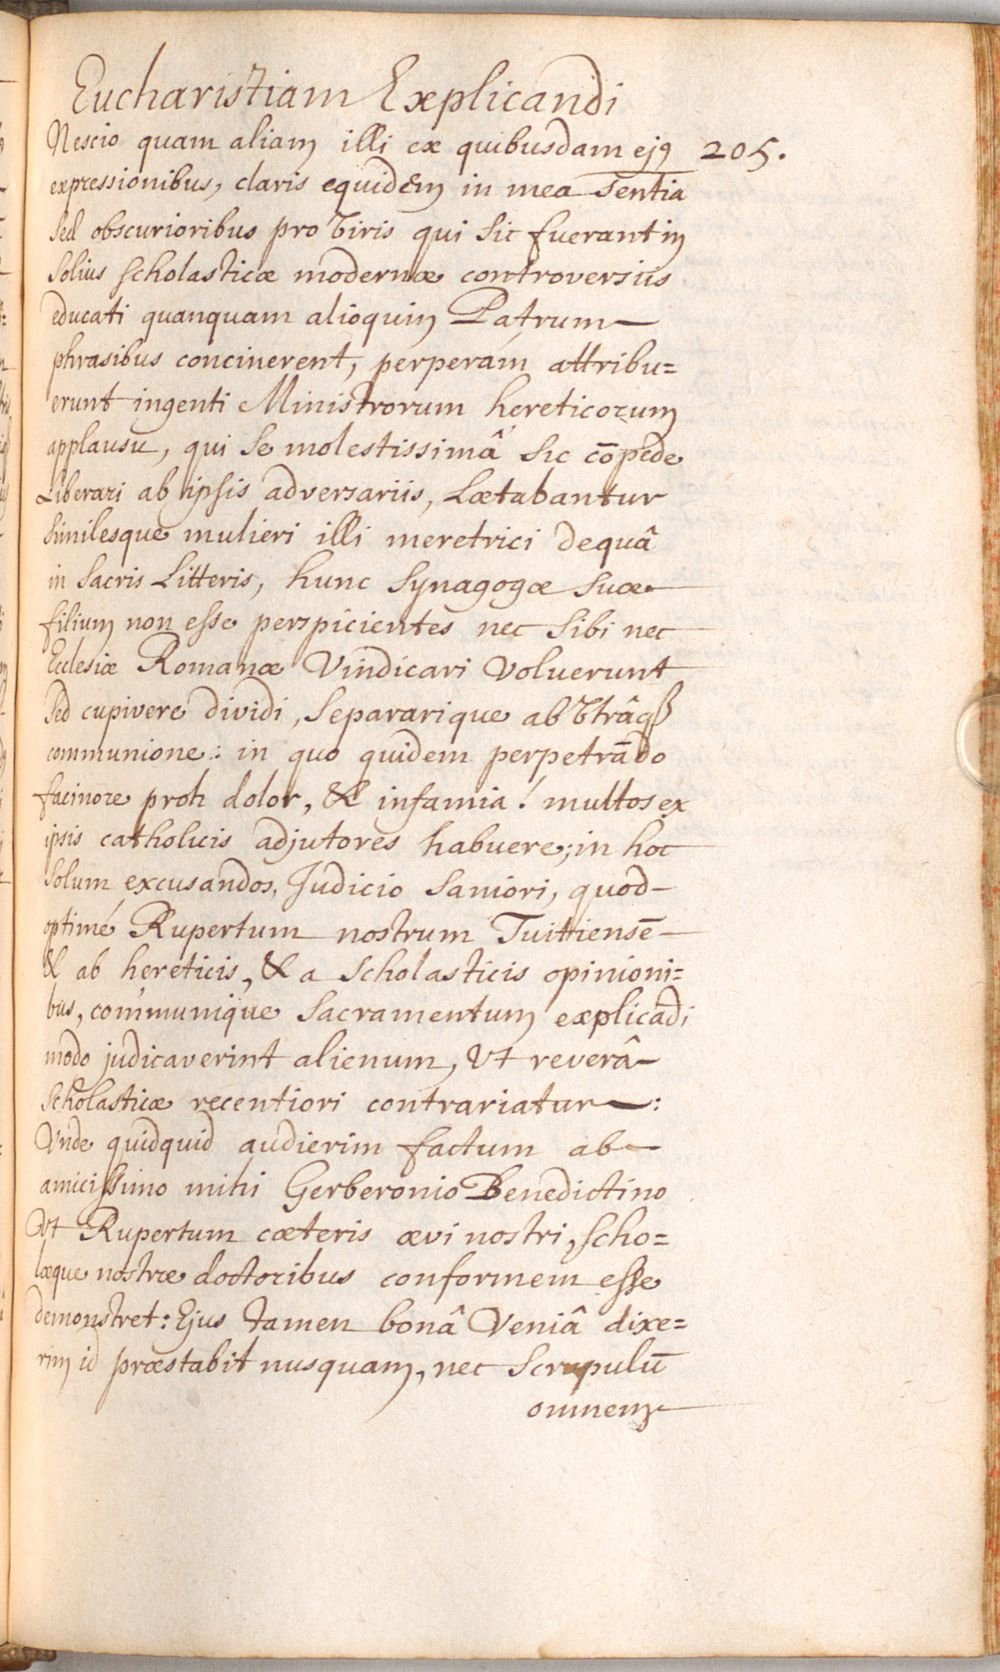 Eucharistiam Explicandi
Nescio quam aliam illi ex quibusdam ejꝰ 205.
expressionibus, claris equidem in mea Sentia
Sed obscurioribus pro Viris qui sic fuerant in
Solius scholasticæ modernæ controversiis
educati quanquam alioquin Patrum
phrasibus concinerent, perperám attribu=
erunt ingenti Ministrorum hereticorum
applausu, qui se molestissimâ sic cōpede
Liberari ab ipsis adversariis, Lætabantur
similesque mulieri illi meretrici dequâ
in Sacris Litteris, hunc Synagogæ suæ
filium non esse perspicientes nec Sibi nec
Ecclesiæ Romanæ Vindicari Voluerunt
Sed cupivere dividi, Separarique ab Vtrâqꝫ
communione: in quo quidem perpetrādo
facinore proh dolor, & infamia! multos ex
ipsis catholicis adjutores habuere; in hoc
Solum excusandos, Judicio Saniori, quod
optimé Rupertum nostrum Tuittiensē
& ab hereticis, & a Scholasticis opinioni=
bus, communique Sacramentum explicādi
modo judicaverint alienum, Vt reverâ
Scholasticæ recentiori contrariatur:
Vnde quidquid audierim factum ab
amicissimo mihi Gerberonio Benedictino
Vt Rupertum cæteris ævi nostri, scho=
læque nostræ doctoribus conformem esse
demonstret: Ejus tamen bonâ Veniâ dixe=
rim id præstabit nusquam, nec Scrupulū
omnem